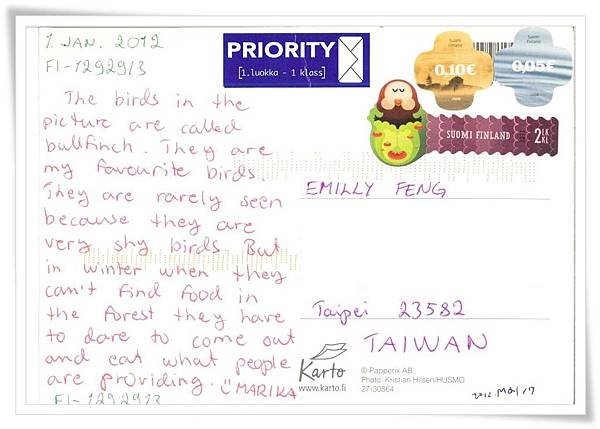 1. JAN. 2012
FI-1292913
The birds in the
picture are called
bullfinch. They are
my favourite birds.
They are rarely seen
because they are
very shy birds But
in winter when they
can't find food in
the forest they have
to dare to come out
and eat what people
are providing. Ü MARIKA
FI-1292913
PRIORITY
[1.luokka - 1 klass]
Suomi
Finland
0,10€
Suomi
Finland
0,05€
SUOMI FINLAND
2 LK
KL
EMILLY FENG
Taipei 23582
TAIWAN
Karto
www.karto.fi
© Papperix AB
Photo: Kristian Hilsen/HUSMO
27-30864
2012. MAY 17